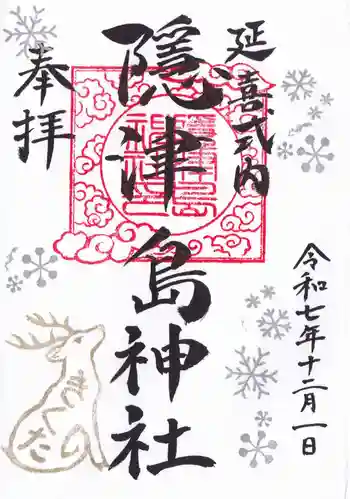 延喜式内
奉拝
隠津島神社
令和七年十二月一日
きくた
の